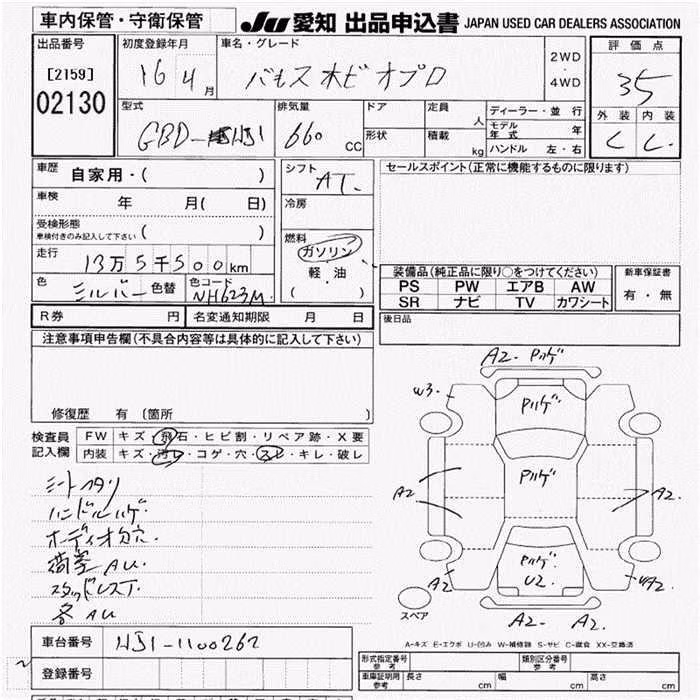 車内保管・守衛保管
JU 愛知 出品申込書 JAPAN USED CAR DEALERS ASSOCIATION
出品番号
[2159]
02130
初度登録年月
16 4 月
車名・グレード
バモス ホビオプロ
2WD
・
4WD
評価点
35
外装 内装
C C
型式
GBD-HJ1
排気量
660 CC
ドア
形状
定員 人
積載 kg
ディーラー・並行
モデル年式 年
ハンドル 左・右
車歴
自家用・( )
車検
年 月( 日)
受検形態
車検付きのみ記入して下さい ( )
走行
13万5千500km
色
シルバー 色替
色コード
NH623M
シフト
AT
冷房
燃料
ガソリン
軽・油
( )
セールスポイント(正常に機能するものに限ります)
装備品(純正品に限り○をつけてください)
PS PW エアB AW
SR ナビ TV カワシート
新車保証書
有・無
後日品
R券 円
名変通知期限 月 日
注意事項申告欄(不具合内容等は具体的に記入して下さい)
修復歴 有〔箇所 〕
検査員
記入欄
FW キズ・飛石・ヒビ割・リペア跡・X要
内装 キズ・汚レ・コゲ・穴・スレ・キレ・破レ
シートヘタリ
ハンドルハゲ
オーディオ欠穴
荷室AU
スタッドレスT
各AU
A2. Pハゲ
W3.
Pハゲ
Pハゲ
A2
A2
Pハゲ
U2
A2
A2. A2.
スペア
A-キズ E-エクボ U-凹み W-補修跡 S-サビ C-腐食 XX-交換済
車台番号
HJ1-1100262
登録番号
形式指定番号
参考
類別区分番号
参考
車庫証明用
参考
長さ cm
幅 cm
高さ cm